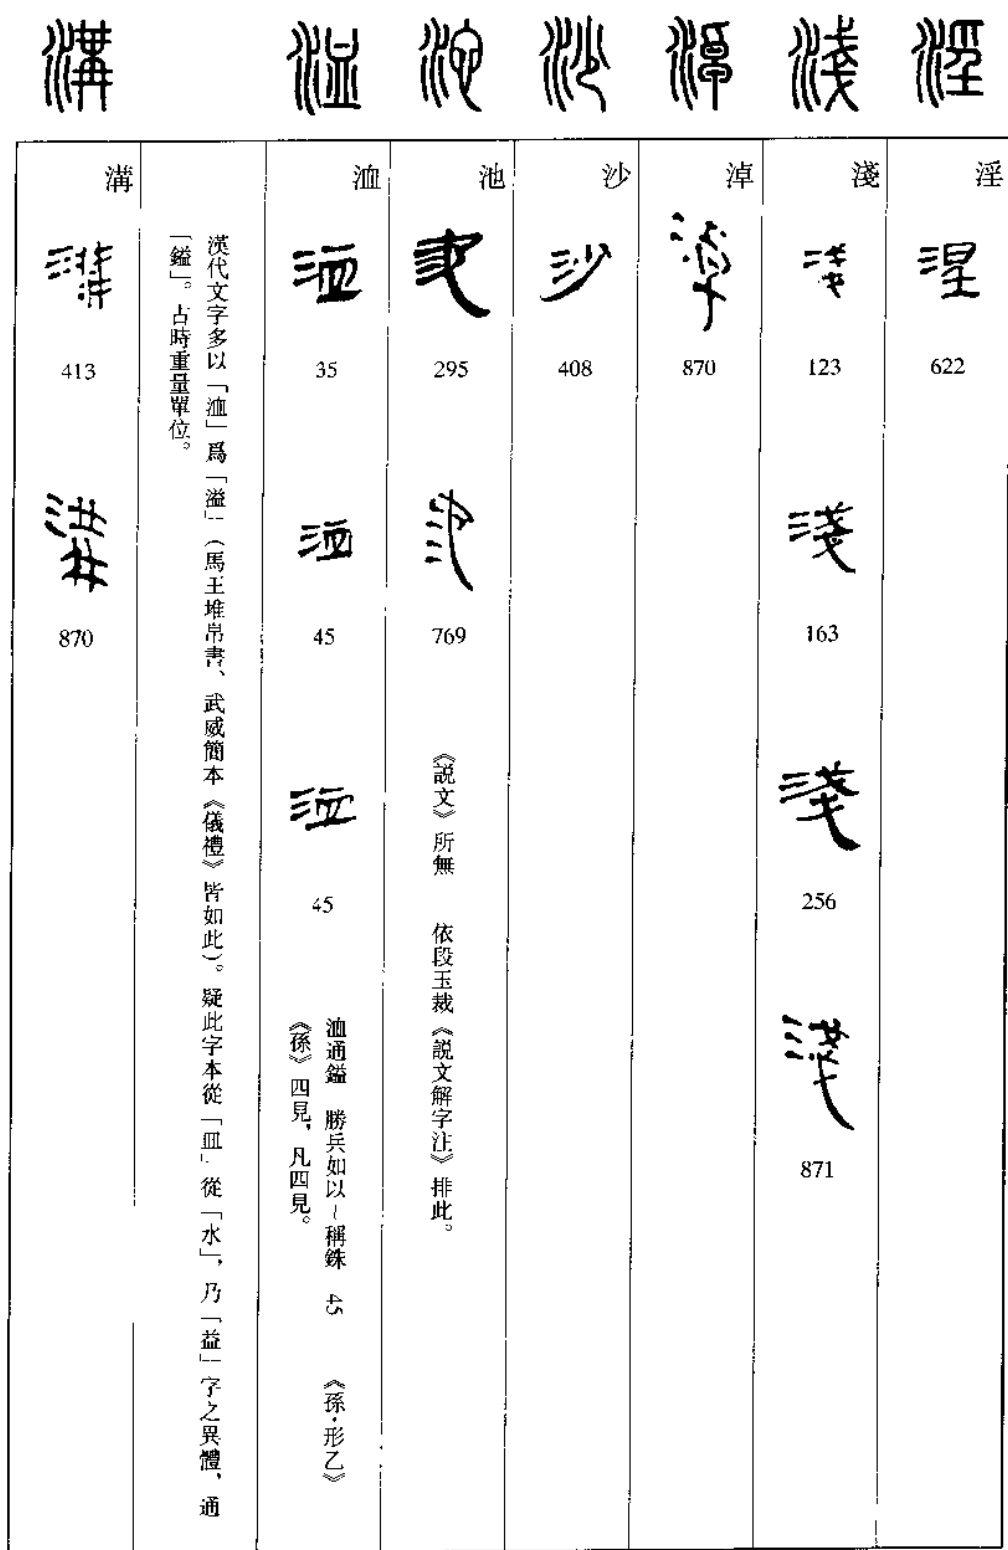 淫
622
淺
123
163
256
871
淖
870
沙
408
池
295
769
《説文》所無　依段玉裁《説文解字注》排此。
洫
35
45
45
洫通鎰　勝兵如以~稱銖　45　《孫·形乙》
《孫》四見，凡四見。
漢代文字多以「洫」爲「溢」（馬王堆帛書、武威簡本《儀禮》皆如此）。疑此字本從「皿」從「水」，乃「益」字之異體，通
「鎰」。古時重量單位。
溝
413
870